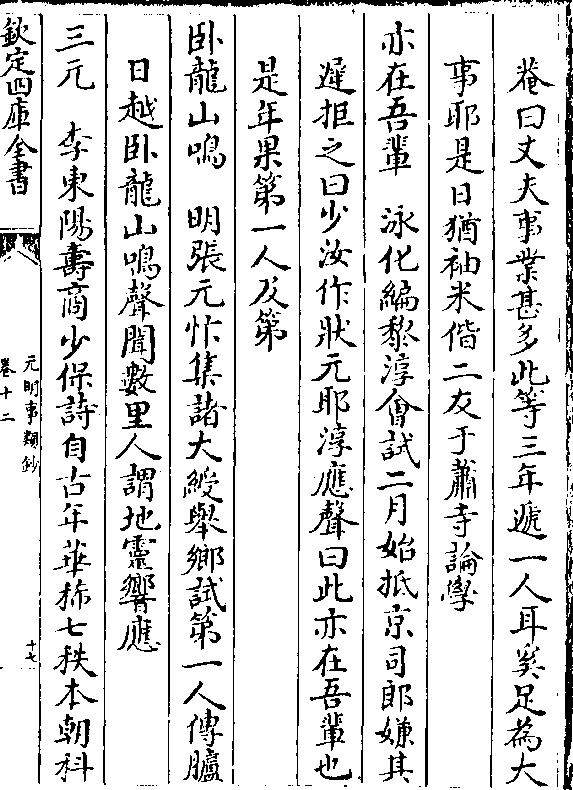 菴曰丈夫事業甚多此等三年遞一人耳奚足為大
事耶是日猶袖米偕二友于蕭寺論學
亦在吾輩　泳化編黎淳會試二月始抵京司郎嫌其
遲拒之曰少汝作狀元耶淳應聲曰此亦在吾輩也
是年果第一人及第
卧龍山鳴　明張元忭集諸大綬舉鄉試第一人傳臚
日越卧龍山鳴聲聞數里人謂地靈響應
三元　李東陽壽商少保詩自古年華稀七秩本朝科
欽定四庫全書
元明事類鈔
卷十二
十七